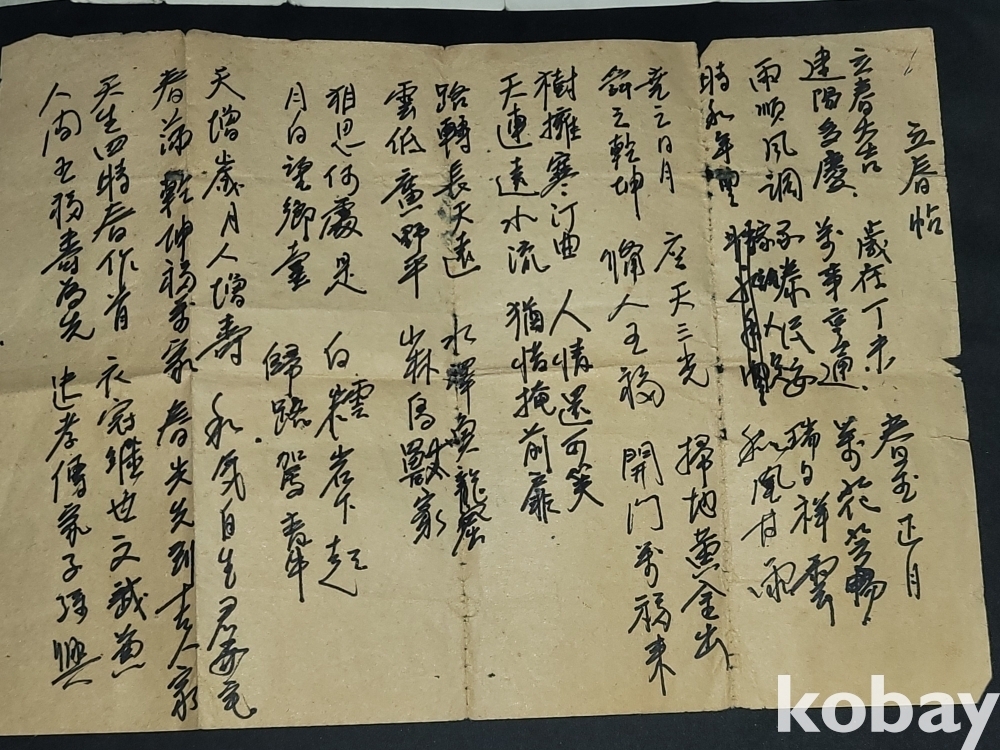 立春帖
立春大吉 歲在丁未 春王正月
建陽多慶 萬事亨通 萬花
雨順風調 泰民安 瑞日祥雲
時和年豊 和風甘雨
堯之日月 座天三光 掃地黄金出
舜之乾坤 備人五福 開門萬福来
樹擁寒汀曲 人情還可笑
天連遠水流 猶惜掩前扉
路轉長天遠 水澤魚龍窟
雲低廣野平 山林鳥獸家
思何處是 白雲岩下起
月白望鄉臺 歸路駕青牛
天增歲月人增壽 和氣自生君子宅
春滿乾坤福萬家 春光先到吉人家
天生四時春作首 衣冠繼世文武兼
人間五福壽為先 忠孝傳家子孫興
kobay